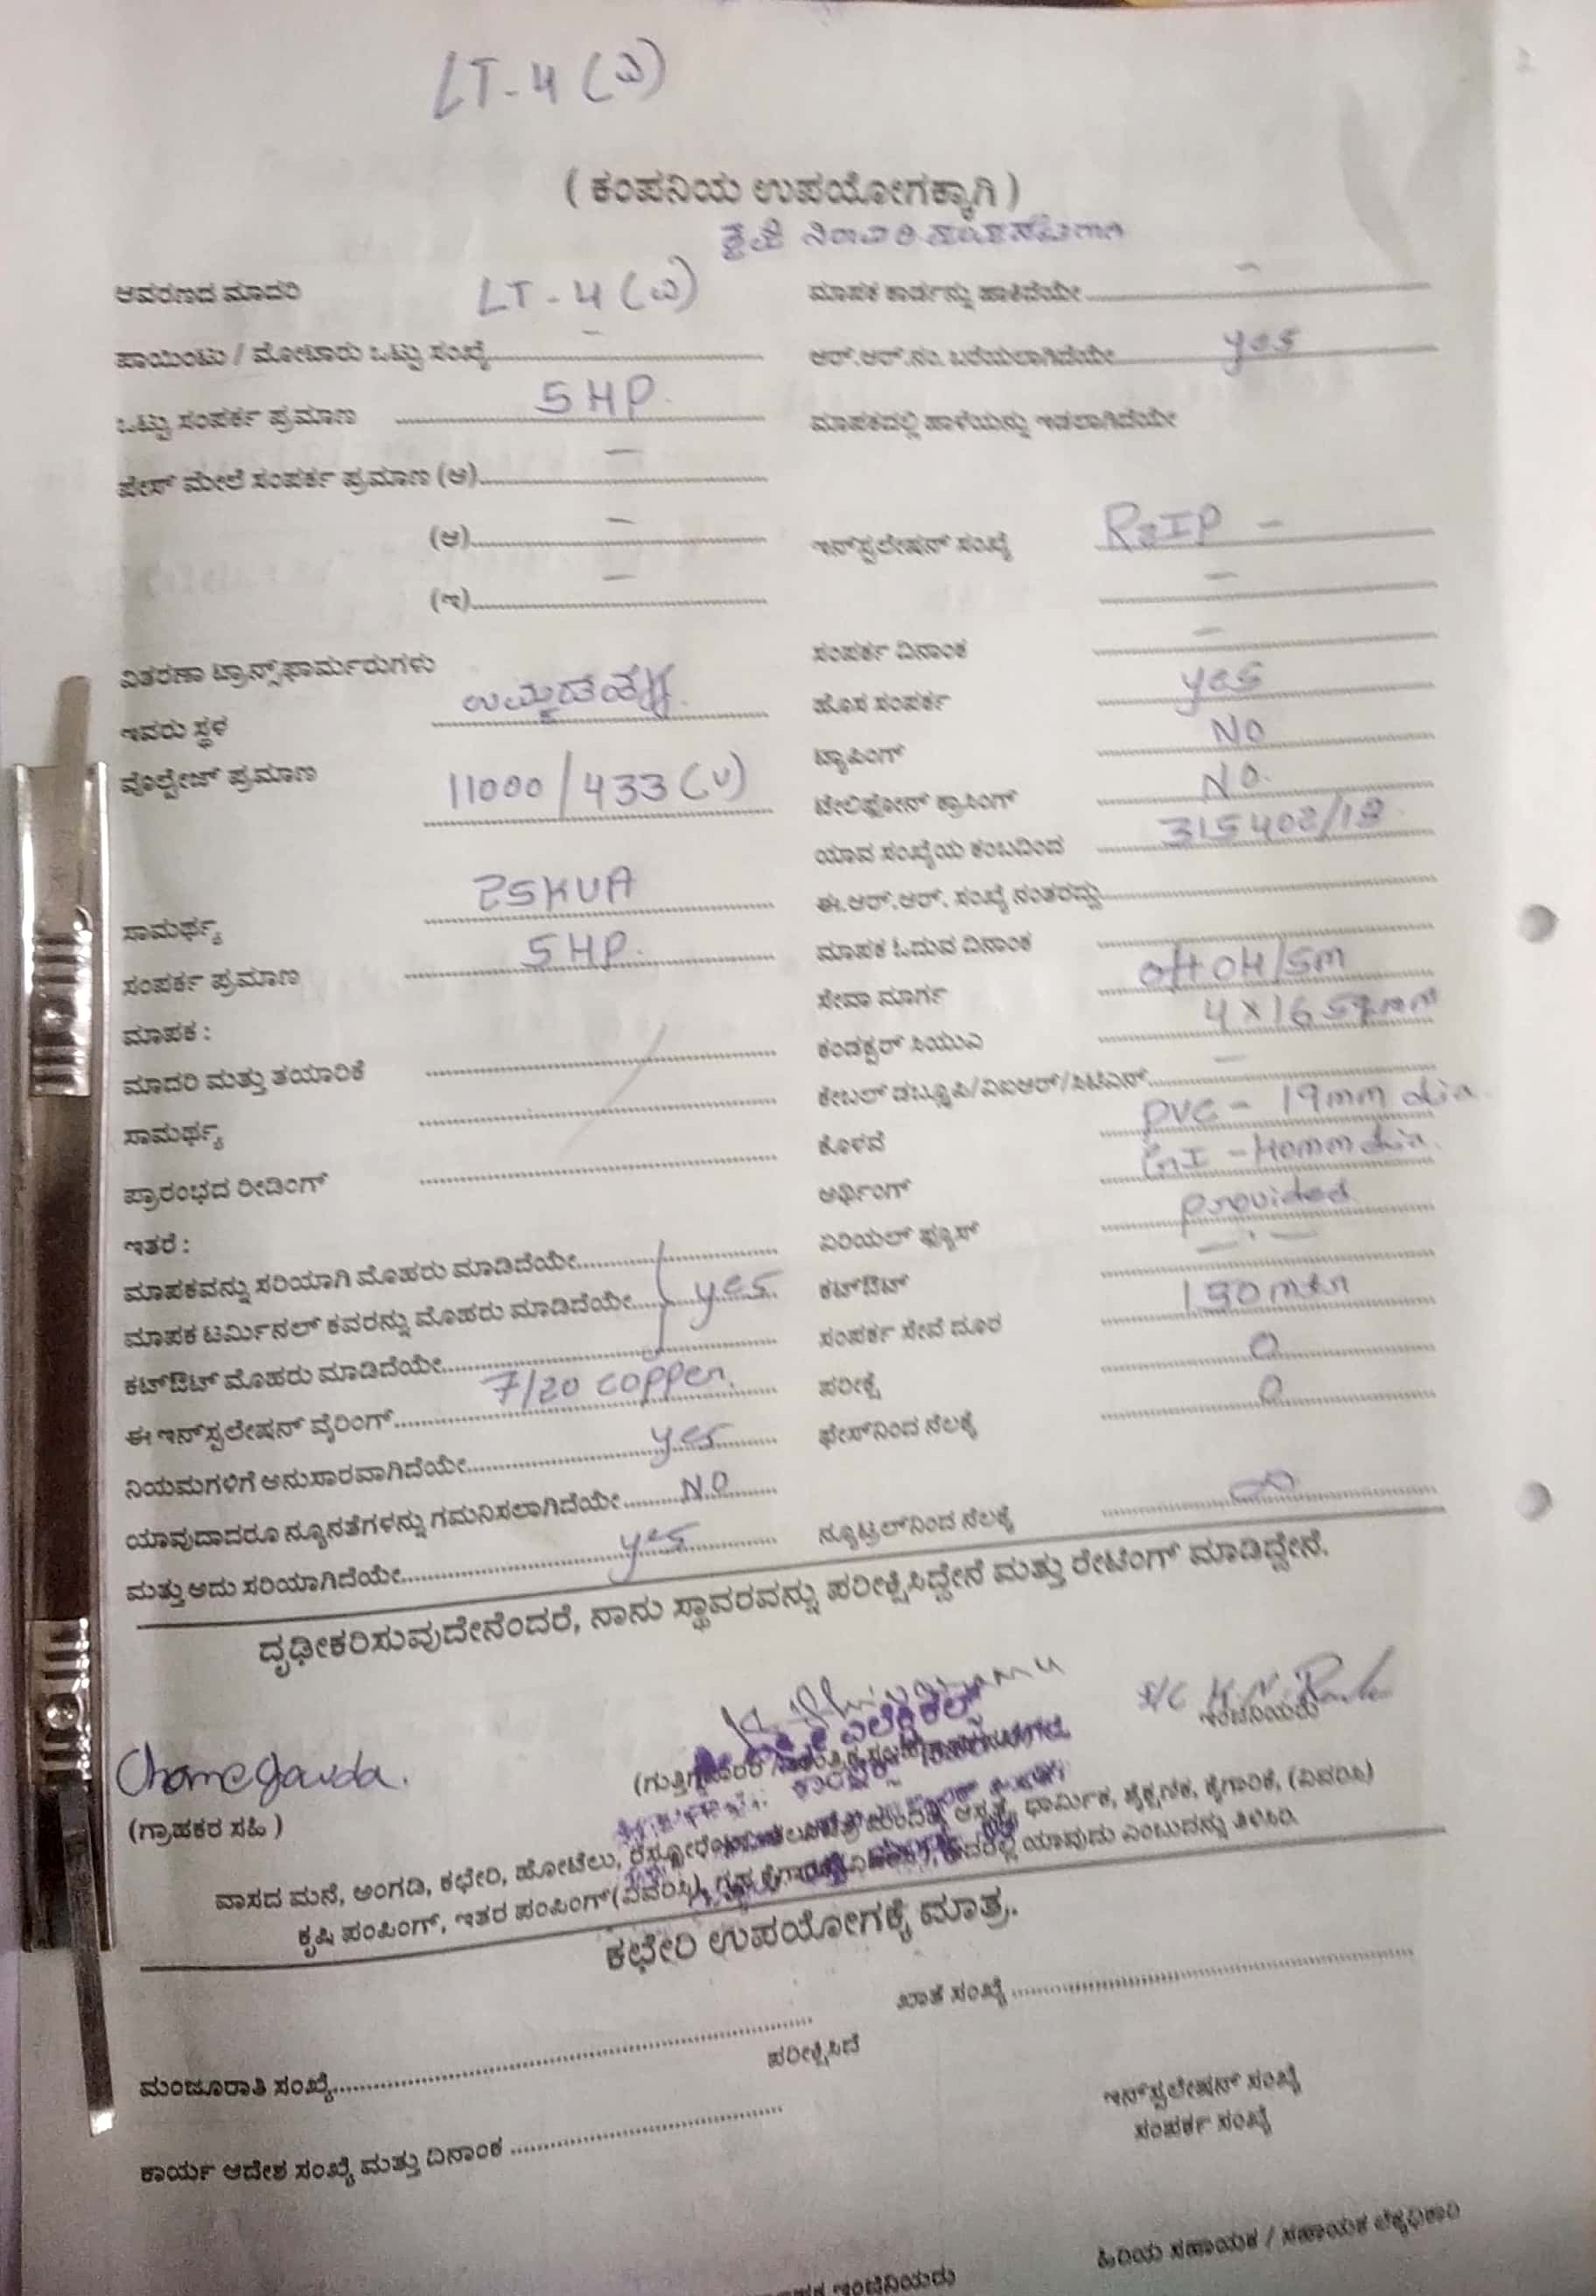 LT-4 (ಎ)
( ಕಂಪನಿಯ ಉಪಯೋಗಕ್ಕಾಗಿ )
ಆವರಣದ ಮಾದರಿ LT-4 (ಎ)
ಮಾಪಕ ಕಾರ್ಡನ್ನು ಹಾಕಿದೆಯೇ -
ಪಾಯಿಂಟು / ಮೋಟಾರು ಒಟ್ಟು ಸಂಖ್ಯೆ -
ಆರ್.ಆರ್.ನಂ. ಬರೆಯಲಾಗಿದೆಯೇ yes
ಒಟ್ಟು ಸಂಪರ್ಕ ಪ್ರಮಾಣ 5 HP.
ಮಾಪಕದಲ್ಲಿ ಹಾಳೆಯನ್ನು ಇಡಲಾಗಿದೆಯೇ
ಫೇಸ್ ಮೇಲೆ ಸಂಪರ್ಕ ಪ್ರಮಾಣ (ಅ) -
(ಆ) -
ಇನ್‌ಸ್ಟಲೇಷನ್ ಸಂಖ್ಯೆ -
(ಇ) -
-
ವಿತರಣಾ ಟ್ರಾನ್ಸ್‌ಫಾರ್ಮರುಗಳು
ಸಂಪರ್ಕ ದಿನಾಂಕ -
ಇವರು ಸ್ಥಳ
ಹೊಸ ಸಂಪರ್ಕ yes
ವೊಲ್ಟೇಜ್ ಪ್ರಮಾಣ 11000/433 (V)
ಟ್ಯಾಪಿಂಗ್ NO
ಟೇಲಿಫೋನ್ ಕ್ರಾಸಿಂಗ್ NO.
ಯಾವ ಸಂಖ್ಯೆಯ ಕಂಬದಿಂದ 315402/18
ಸಾಮರ್ಥ್ಯ 25KVA
ಈ.ಆರ್.ಆರ್. ಸಂಖ್ಯೆ ನಂತರದ್ದು
ಸಂಪರ್ಕ ಪ್ರಮಾಣ 5 HP.
ಮಾಪಕ ಓದುವ ದಿನಾಂಕ
ಮಾಪಕ :
ಸೇವಾ ಮಾರ್ಗ OH/SM
ಮಾದರಿ ಮತ್ತು ತಯಾರಿಕೆ
ಕಂಡಕ್ಟರ್ ಸಿಯುಎ 4 x 16 sqmm
ಸಾಮರ್ಥ್ಯ
ಕೇಬಲ್ ಡಬ್ಲ್ಯೂಪಿ/ವಿಐಆರ್/ಸಿಟಿಎಸ್ -
ಪ್ರಾರಂಭದ ರೀಡಿಂಗ್
ಕೊಳವೆ PVC - 19mm dia.
ಇತರೆ :
ಅರ್ಥಿಂಗ್ GI - 40mm dia.
ಮಾಪಕವನ್ನು ಸರಿಯಾಗಿ ಮೊಹರು ಮಾಡಿದೆಯೇ
ಏರಿಯಲ್ ಫ್ಯೂಸ್ provided
ಮಾಪಕ ಟರ್ಮಿನಲ್ ಕವರನ್ನು ಮೊಹರು ಮಾಡಿದೆಯೇ yes
ಕಟ್‌ಔಟ್ — " —
ಕಟ್‌ಔಟ್ ಮೊಹರು ಮಾಡಿದೆಯೇ
ಸಂಪರ್ಕ ಸೇವೆ ದೂರ
ಈ ಇನ್‌ಸ್ಟಲೇಷನ್ ವೈರಿಂಗ್ 7/20 copper.
ಪರೀಕ್ಷೆ 0
ನಿಯಮಗಳಿಗೆ ಅನುಸಾರವಾಗಿದೆಯೇ yes
ಫೇಸ್‌ನಿಂದ ನೆಲಕ್ಕೆ 0
ಯಾವುದಾದರೂ ನ್ಯೂನತೆಗಳನ್ನು ಗಮನಿಸಲಾಗಿದೆಯೇ NO
ಮತ್ತು ಅದು ಸರಿಯಾಗಿದೆಯೇ yes
ನ್ಯೂಟ್ರಲ್‌ನಿಂದ ನೆಲಕ್ಕೆ ∞
ದೃಢೀಕರಿಸುವುದೇನೆಂದರೆ, ನಾನು ಸ್ಥಾವರವನ್ನು ಪರೀಕ್ಷಿಸಿದ್ದೇನೆ ಮತ್ತು ರೇಟಿಂಗ್ ಮಾಡಿದ್ದೇನೆ.
Chamegauda.
ಇಂಜಿನಿಯರು
(ಗ್ರಾಹಕರ ಸಹಿ )
ವಾಸದ ಮನೆ, ಅಂಗಡಿ, ಕಛೇರಿ, ಹೋಟೆಲು, ಆಸ್ಪತ್ರೆ, ಧಾರ್ಮಿಕ, ಶೈಕ್ಷಣಿಕ, ಕೈಗಾರಿಕೆ, (ವಿವರಿಸಿ)
ಕೃಷಿ ಪಂಪಿಂಗ್, ಇತರ ಪಂಪಿಂಗ್ (ವಿವರಿಸಿ), ಗೃಹ ಯಾವುದು ಎಂಬುದನ್ನು ತಿಳಿಸಿರಿ.
ಕಛೇರಿ ಉಪಯೋಗಕ್ಕೆ ಮಾತ್ರ.
ಖಾತೆ ಸಂಖ್ಯೆ
ಮಂಜೂರಾತಿ ಸಂಖ್ಯೆ
ಪರೀಕ್ಷಿಸಿದೆ
ಇನ್‌ಸ್ಟಲೇಷನ್ ಸಂಖ್ಯೆ
ಸಂಪರ್ಕ ಸಂಖ್ಯೆ
ಕಾರ್ಯ ಆದೇಶ ಸಂಖ್ಯೆ ಮತ್ತು ದಿನಾಂಕ
ಹಿರಿಯ ಸಹಾಯಕ / ಸಹಾಯಕ ಲೆಕ್ಕಾಧಿಕಾರಿ
ಇಂಜಿನಿಯರು